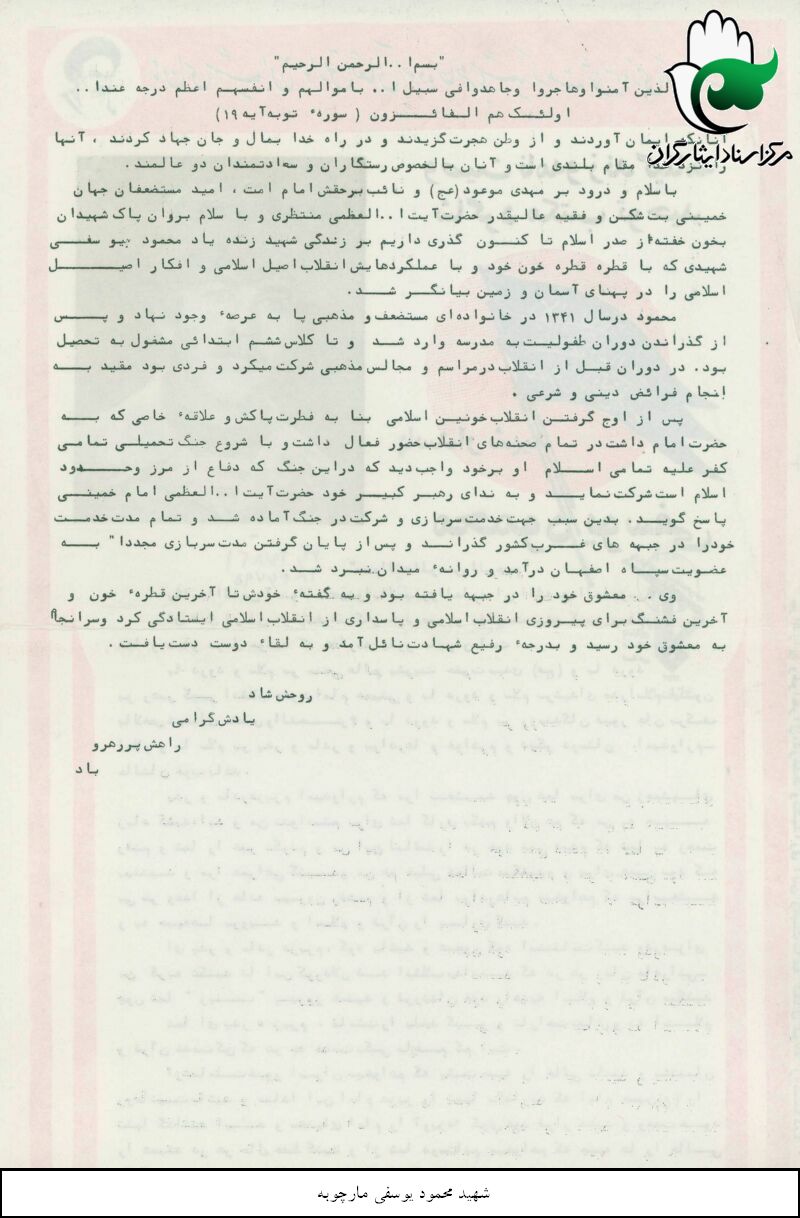 مرکز اسناد ایثارگران
"بسم ا..الرحمن الرحیم"
الذین آمنوا وهاجروا وجاهدوافی سبیل ا.. باموالهم و انفسهم اعظم درجه عندا..
اولئک هم الفائزون ( سوره توبه‌آیه ۱۹)
آنانکه ایمان آوردند و از وطن هجرت گزیدند و در راه خدا بمال و جان جهاد کردند ، آنها
را نزد خدا مقام بلندی است و آنان بالخصوص رستگاران و سعادتمندان دو عالمند .
باسلام و درود بر مهدی موعود (عج) و نائب برحقش امام امت ، امید مستضعفان جهان
خمینی بت شکن و فقیه عالیقدر حضرت آیت ا..العظمی منتظری و با سلام بروان پاک شهیدان
بخون خفته از صدر اسلام تا کنون گذری داریم بر زندگی شهید زنده یاد محمود یوسفی
شهیدی که با قطره قطره خون خود و با عملکردهایش انقلاب اصیل اسلامی و افکار اصیل
اسلامی را در پهنای آسمان و زمین بیانگر شد .
محمود درسال ۱۳۴۱ در خانواده‌ای مستضعف و مذهبی پا به عرصهٔ وجود نهاد و پس
از گذراندن دوران طفولیت به مدرسه وارد شد و تا کلاس ششم ابتدائی مشغول به تحصیل
بود. در دوران قبل از انقلاب درمراسم و مجالس مذهبی شرکت میکرد و فردی بود مقید به
انجام فرائض دینی و شرعی .
پس از اوج گرفتن انقلاب خونین اسلامی بنا به فطرت پاکش و علاقهٔ خاصی که به
حضرت امام داشت در تمام صحنه‌های انقلاب حضور فعال داشت و با شروع جنگ تحمیلی تمامی
کفر علیه تمامی اسلام او برخود واجب دید که دراین جنگ که دفاع از مرز وحدود
اسلام است شرکت نماید و به ندای رهبر کبیر خود حضرت آیت ا..العظمی امام خمینی
پاسخ گوید. بدین سبب جهت خدمت سربازی و شرکت در جنگ آماده شد و تمام مدت خدمت
خودرا در جبهه های غرب کشور گذراند و پس از پایان گرفتن مدت سربازی مجددا" به
عضویت سپاه اصفهان درآمد و روانهٔ میدان نبرد شد.
وی .. معشوق خود را در جبهه یافته بود و به گفتهٔ خودش تا آخرین قطرهٔ خون و
آخرین فشنگ برای پیروزی انقلاب اسلامی و پاسداری از انقلاب اسلامی ایستادگی کرد وسرانجام
به معشوق خود رسید و بدرجهٔ رفیع شهادت نائل آمد و به لقاء دوست دست یافت .
روحش شاد
یادش گرامی
راهش پررهرو
باد
شهید محمود یوسفی مارچوبه